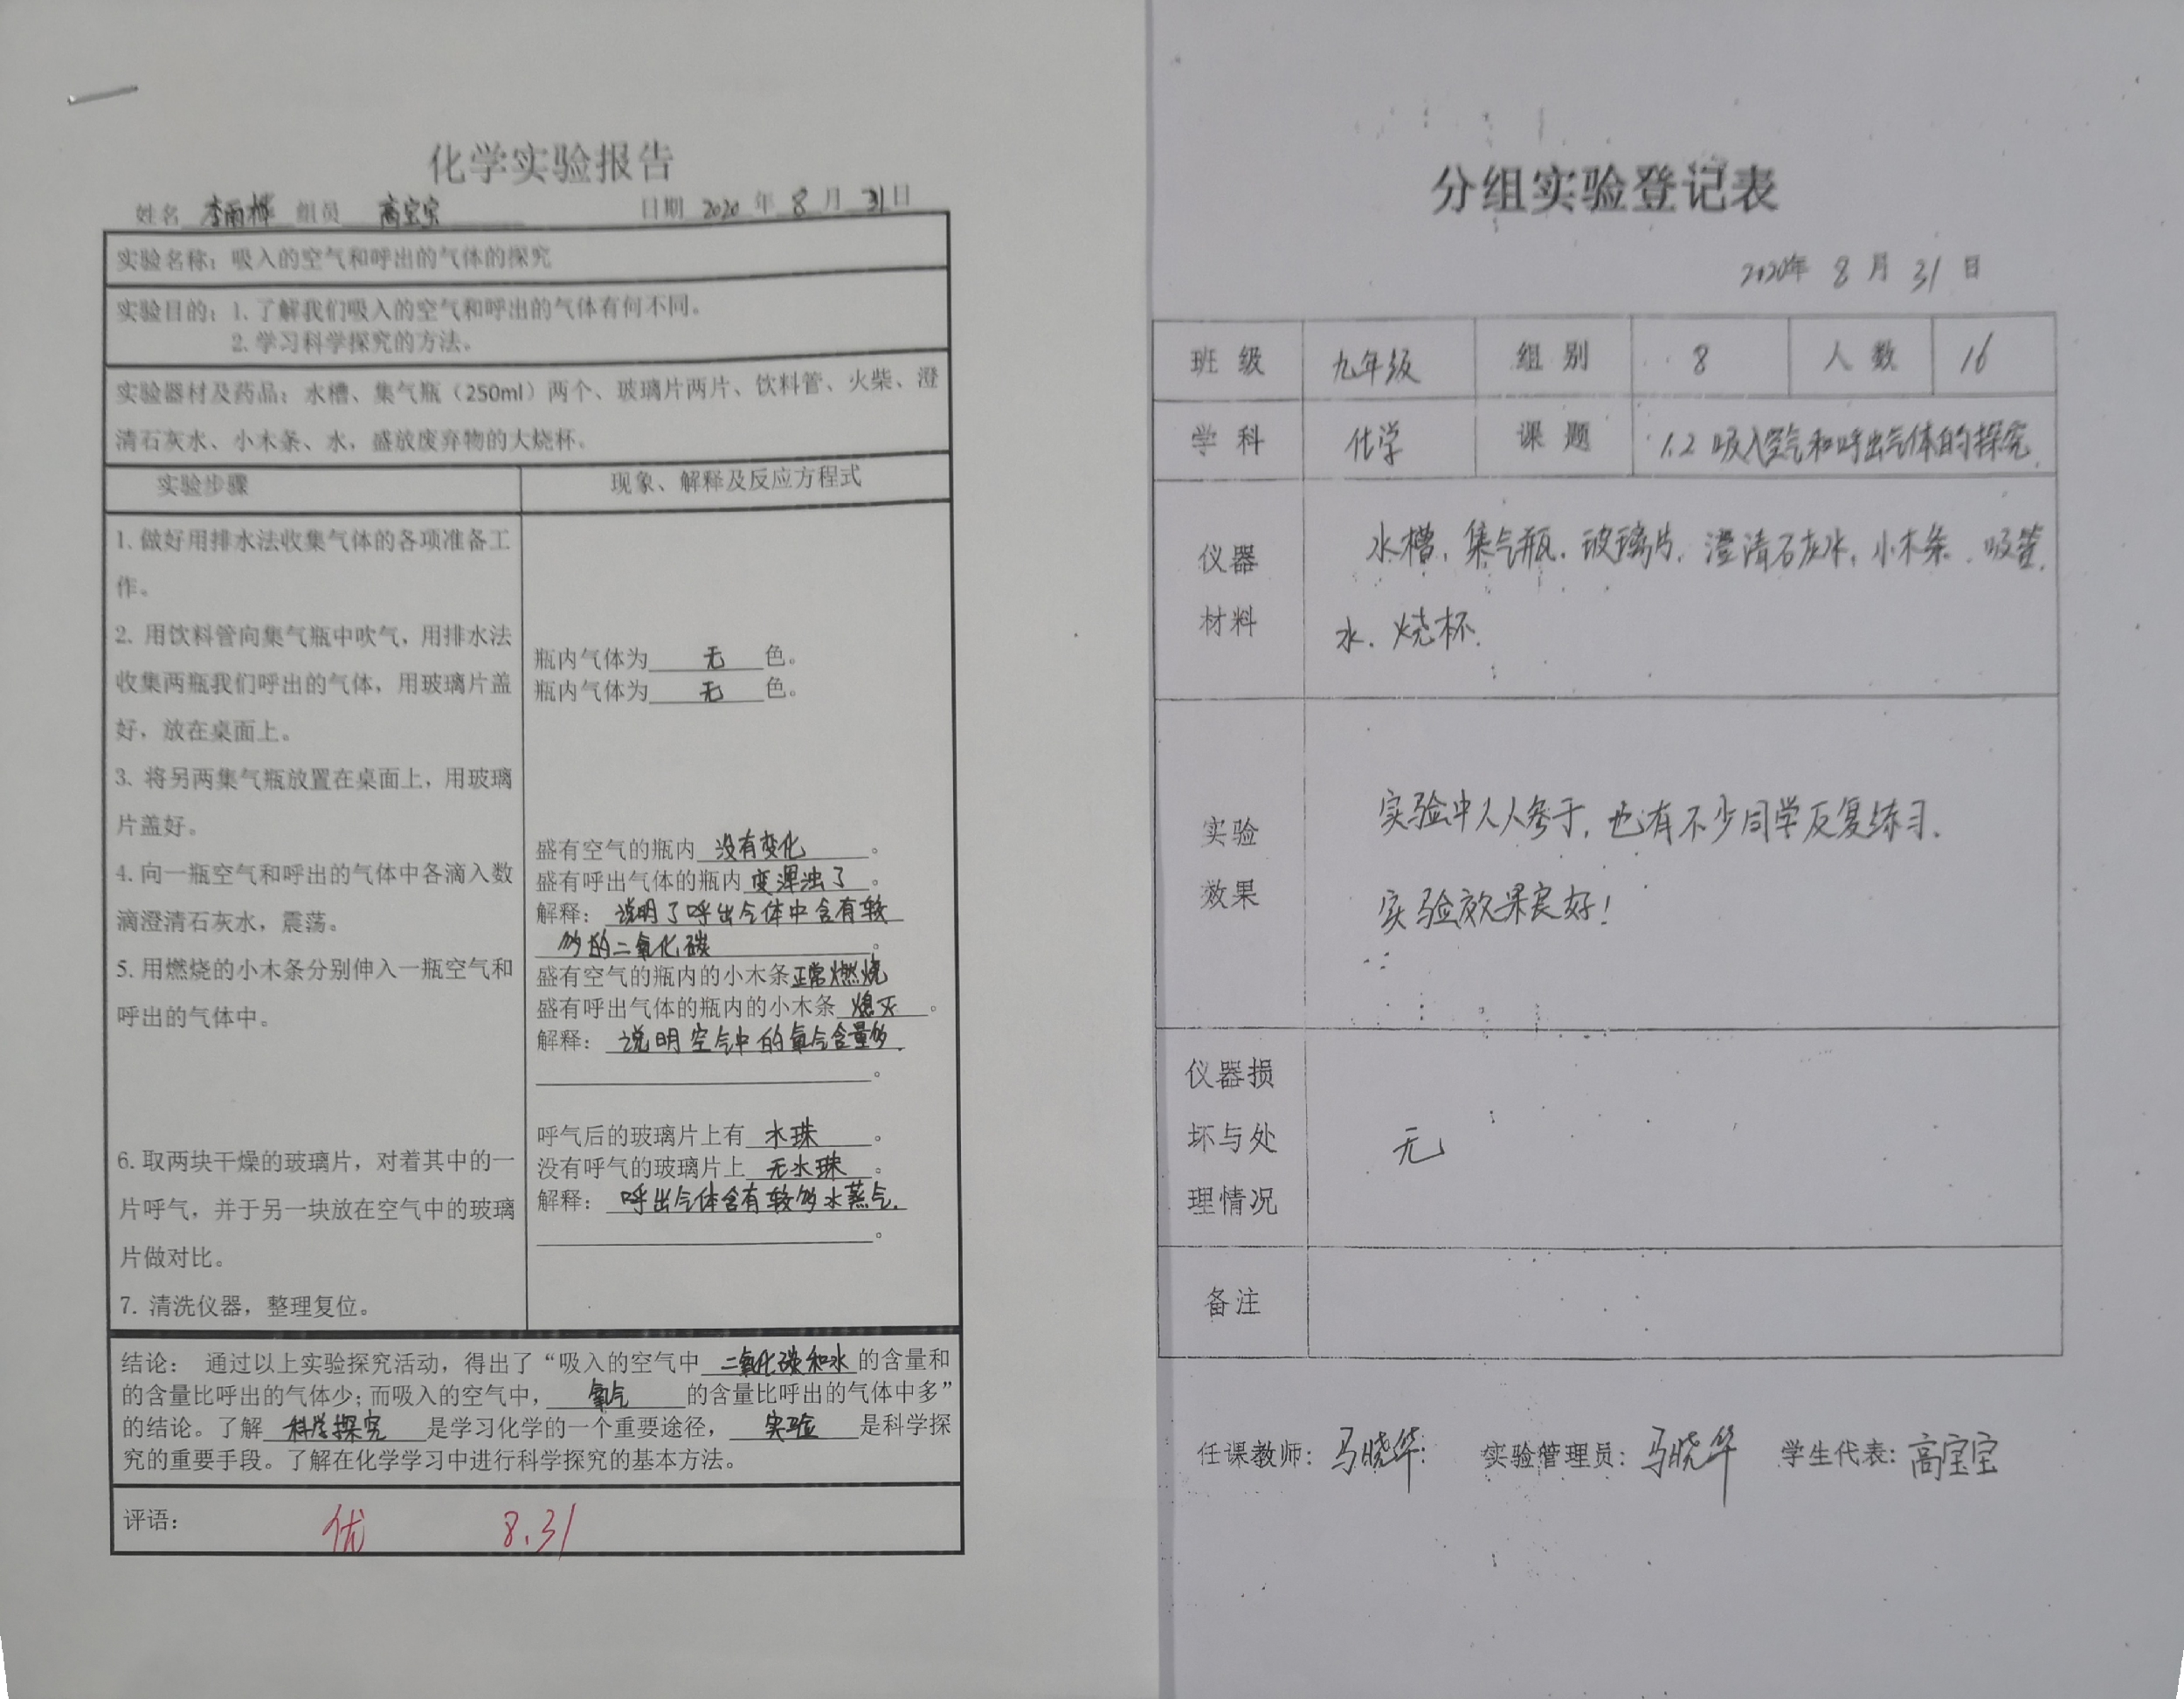 化学实验报告
姓名 李雨桦 组员 高宝宝 日期 2020 年 8 月 31 日
实验名称：吸入的空气和呼出的气体的探究
实验目的：1.了解我们吸入的空气和呼出的气体有何不同。
2.学习科学探究的方法。
实验器材及药品：水槽、集气瓶（250ml）两个、玻璃片两片、饮料管、火柴、澄
清石灰水、小木条、水，盛放废弃物的大烧杯。
实验步骤
1.做好用排水法收集气体的各项准备工
作。
2. 用饮料管向集气瓶中吹气，用排水法
收集两瓶我们呼出的气体，用玻璃片盖
好，放在桌面上。
3. 将另两集气瓶放置在桌面上，用玻璃
片盖好。
4.向一瓶空气和呼出的气体中各滴入数
滴澄清石灰水，震荡。
5.用燃烧的小木条分别伸入一瓶空气和
呼出的气体中。
6.取两块干燥的玻璃片，对着其中的一
片呼气，并于另一块放在空气中的玻璃
片做对比。
7. 清洗仪器，整理复位。
现象、解释及反应方程式
瓶内气体为 无 色。
瓶内气体为 无 色。
盛有空气的瓶内 没有变化 。
盛有呼出气体的瓶内 变浑浊了 。
解释： 说明了呼出气体中含有较
多的二氧化碳 。
盛有空气的瓶内的小木条正常燃烧
盛有呼出气体的瓶内的小木条 熄灭 。
解释： 说明空气中的氧气含量多.
。
呼气后的玻璃片上有 水珠 。
没有呼气的玻璃片上 无水珠 。
解释： 呼出气体含有较多水蒸气.
。
结论： 通过以上实验探究活动，得出了“吸入的空气中 二氧化碳和水 的含量和
的含量比呼出的气体少；而吸入的空气中， 氧气 的含量比呼出的气体中多”
的结论。了解 科学探究 是学习化学的一个重要途径， 实验 是科学探
究的重要手段。了解在化学学习中进行科学探究的基本方法。
评语： 优 8.31
分组实验登记表
2020年 8 月 31 日
班 级 九年级 组 别 8 人 数 16
学 科 化学 课 题 1.2 吸入空气和呼出气体的探究.
仪器
材料
水槽. 集气瓶. 玻璃片. 澄清石灰水. 小木条. 吸管.
水. 烧杯.
实验
效果
实验中人人参于, 也有不少同学反复练习.
实验效果良好!
仪器损
坏与处
理情况
无
备注
任课教师：马晓华 实验管理员：马晓华 学生代表：高宝宝